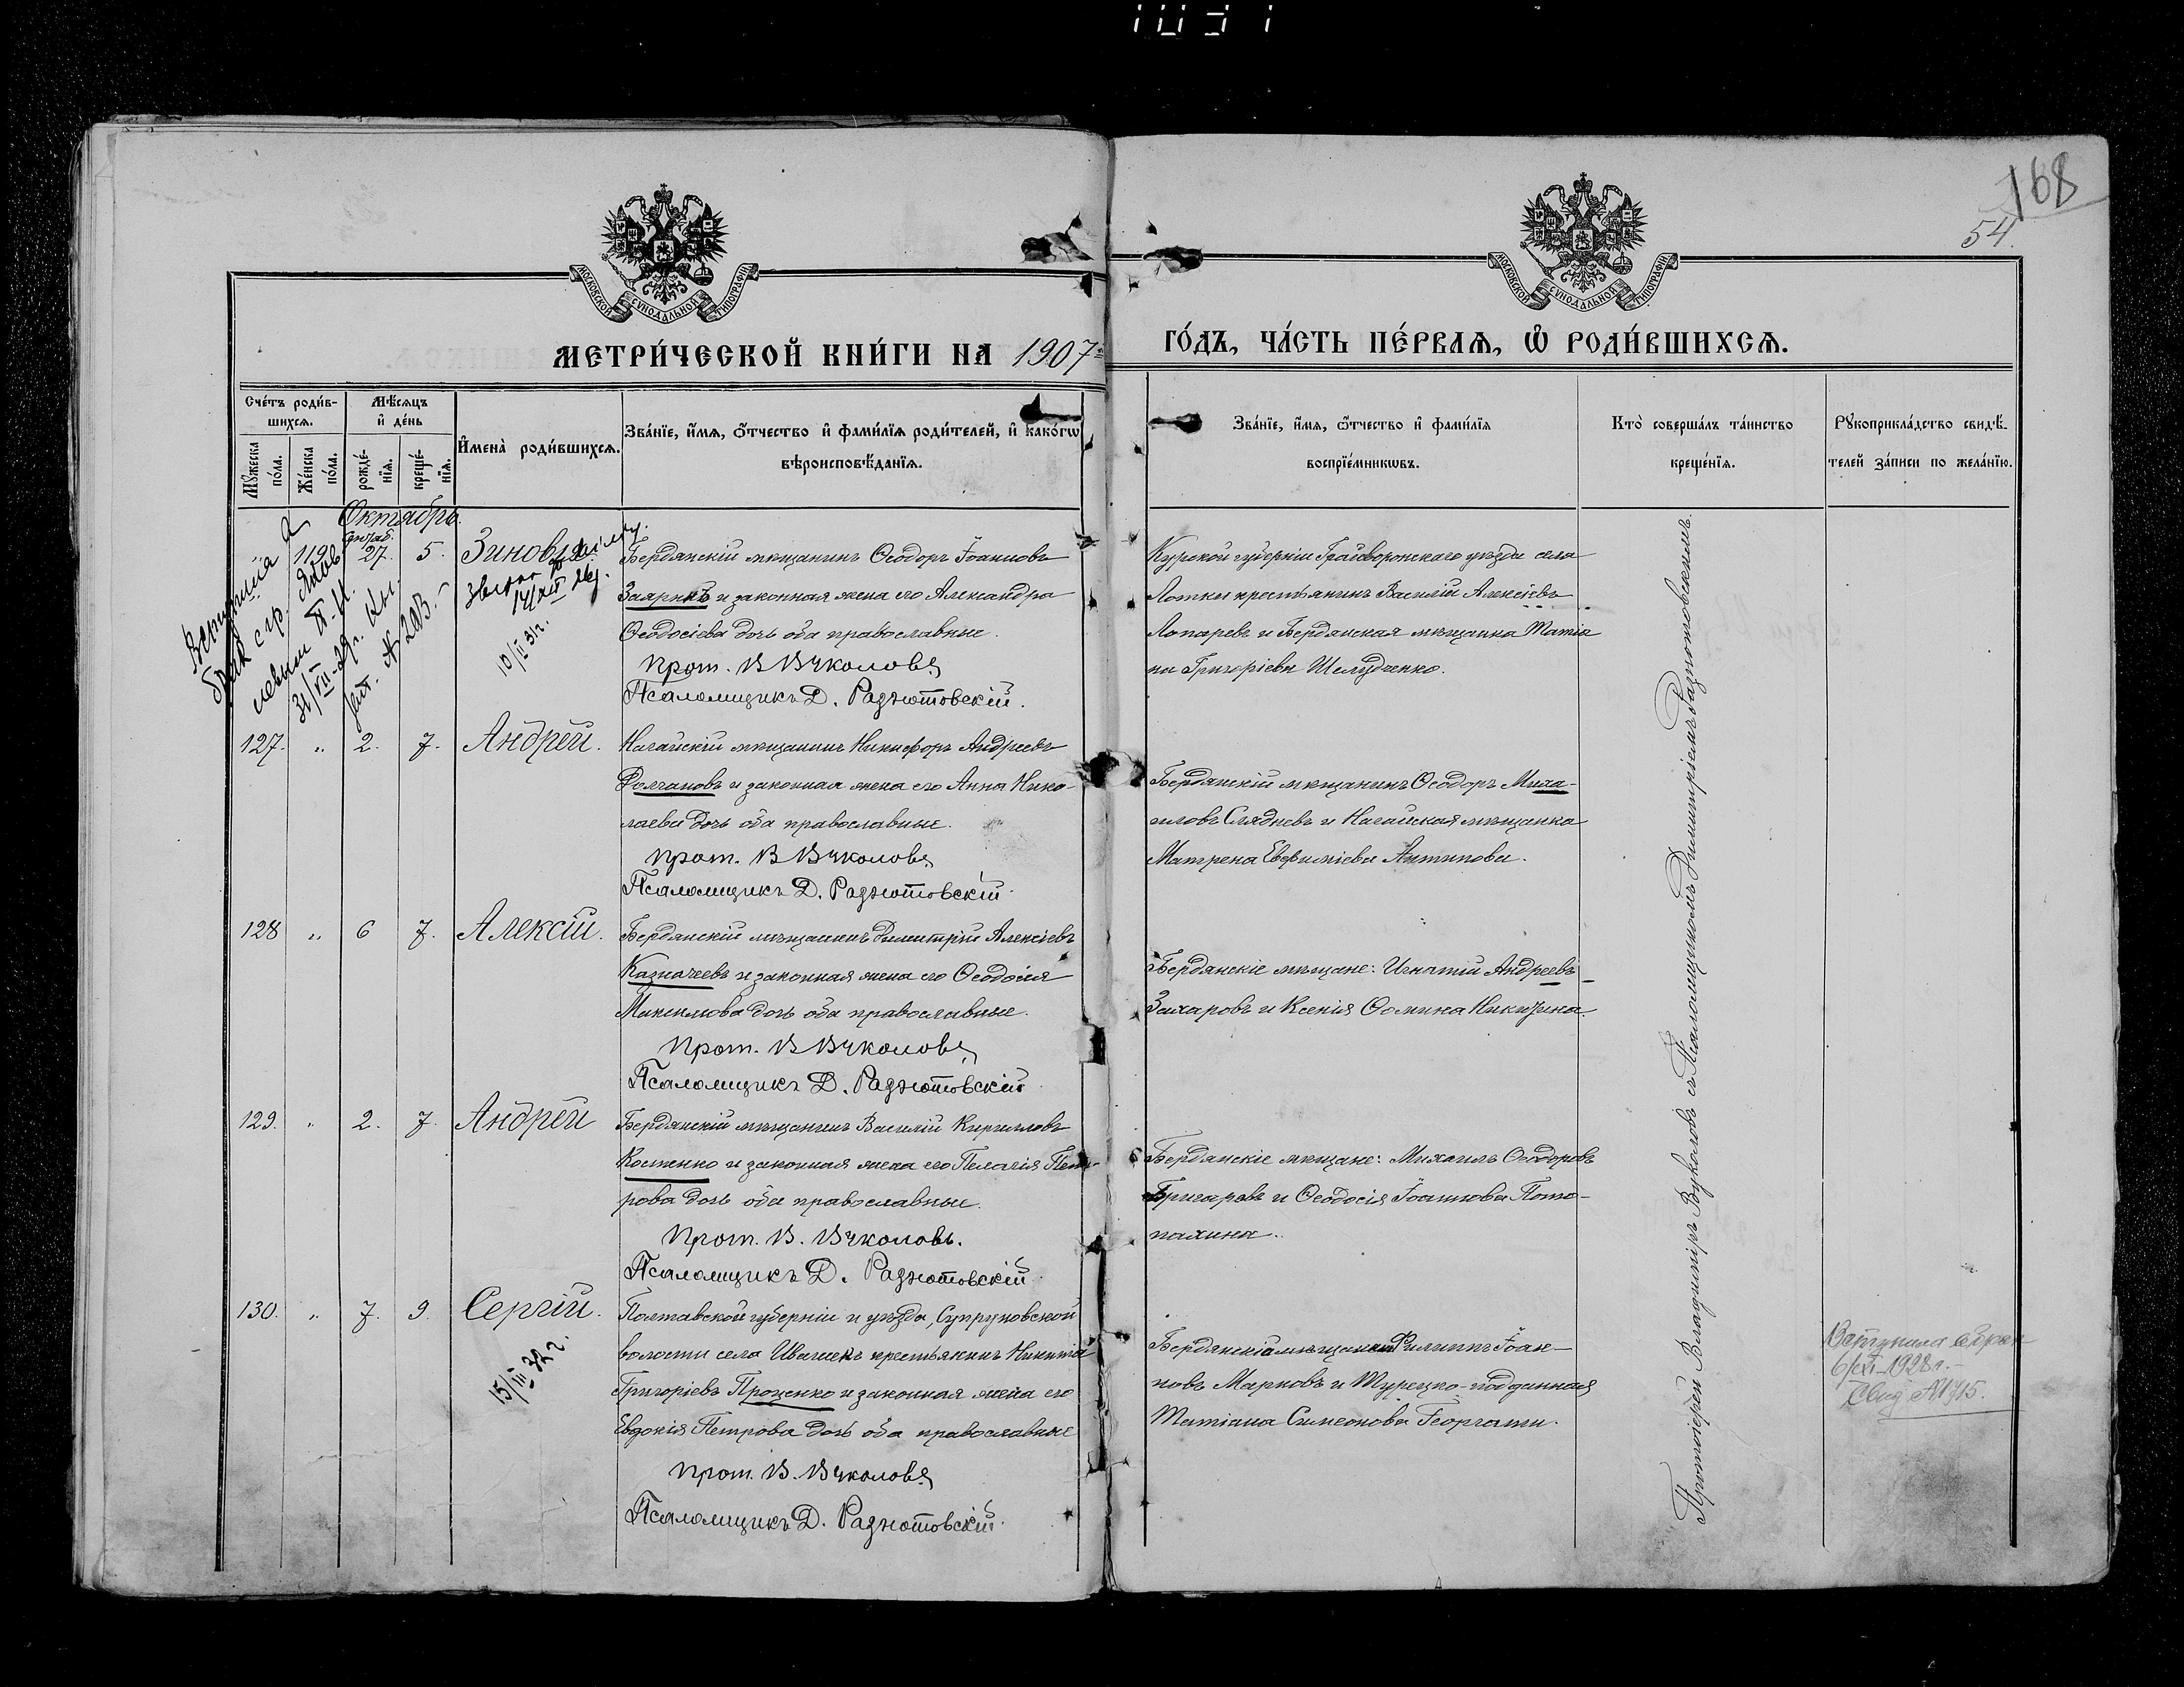 168
54.
МОСКОВСКОЙ СУНОДАЛЬНОЙ ТИПОГРАФІИ
МОСКОВСКОЙ СУНОДАЛЬНОЙ ТИПОГРАФІИ
МЕТРИ́ЧЕСКОЙ КНИ́ГИ НА 1907
ГО́ДЪ, ЧА́СТЬ ПЕ́РВАѦ, Ѡ РОДИ́ВШИХСѦ.
Сче́тъ роди́в-
шихсѧ.
Мꙋжеска по́ла.
Же́нска по́ла.
Мѣ́сѧцъ
и҆ де́нь
рожде́-
нїѧ.
креще́-
нїѧ.
И҆мена̀ роди́вшихсѧ.
Зва́нїе, и҆́мѧ, ѻ҆́тчество и҆ фами́лїѧ роди́телей, и҆ како́гѡ
вѣроисповѣ́данїѧ.
Зва́нїе, и҆́мѧ, ѻ҆́тчество и҆ фами́лїѧ
воспрїе́мникѡвъ.
Кто̀ соверша́лъ та́инство
креще́нїѧ.
Рꙋкоприкла́дство свидѣ́-
телей за́писи по жела́нїю.
Октябрь.
119. 27. 5. Зиновія
Бердянскій мѣщанинъ Ѳеодоръ Іоанновъ
Заярнъ и законная жена его Александра
Ѳеодосіева дочь оба православные.
Прот. В Вуколовъ
Псаломщикъ Д. Раздютовскій.
Курской губерніи Грайворонскаго уѣзда села
Лотки крестьянинъ Василій Алексіевъ
Лопаревъ и Бердянская мѣщанка Татіа
на Григоріева Шелудченко.
31/VII-29г.
10/II 31г.
127. " 2. 7. Андрей.
Ногайскій мѣщанинъ Никифоръ Андреевъ
Долгановъ и законная жена его Анна Нико-
лаева дочь оба православные.
Прот. В Вуколовъ
Псаломщикъ Д. Раздютовскій.
Бердянскій мѣщанинъ Ѳеодоръ Миха-
иловъ Сладневъ и Ногайская мѣщанка
Матрена Евфиміева Антипова.
128 " 6 7. Алексій.
Бердянскій мѣщанинъ Димитрій Алексіевъ
Казначеевъ и законная жена его Ѳеодосія
Максимова дочь оба православные.
Прот. В Вуколовъ
Псаломщикъ Д. Раздютовскій
Бердянскіе мѣщане: Игнатій Андреевъ
Захаровъ и Ксенія Ѳомина Никитина.
129. " 2. 7. Андрей
Бердянскій мѣщанинъ Василій Кирилловъ
Костенко и законная жена его Пелагія Пет-
рова дочь оба православные.
Прот. В. Вуколовъ.
Псаломщикъ Д. Раздютовскій.
Бердянскіе мѣщане: Михаилъ Ѳеодоровъ
Григаревъ и Ѳеодосія Іоаннова Пото-
пахина.
130. " 7. 9. Сергій.
Полтавской губерніи и уѣзда, Супруновской
волости села Ивашекъ крестьянинъ Никита
Григоріевъ Проценко и законная жена его
Евдокія Петрова дочь оба православные
Прот. В. Вуколовъ
Псаломщикъ Д. Раздютовскій.
15/III 32г.
Бердянскій мѣщанинъ Филиппъ Іоан-
новъ Марковъ и Турецко-подданная
Татіана Симеонова Георгати.
Протоіерей Владиміръ Вуколовъ съ Псаломщикомъ Димитріемъ Раздютовскимъ.
Вступила в брак
6/XI-1928г.-
Свид №1715.